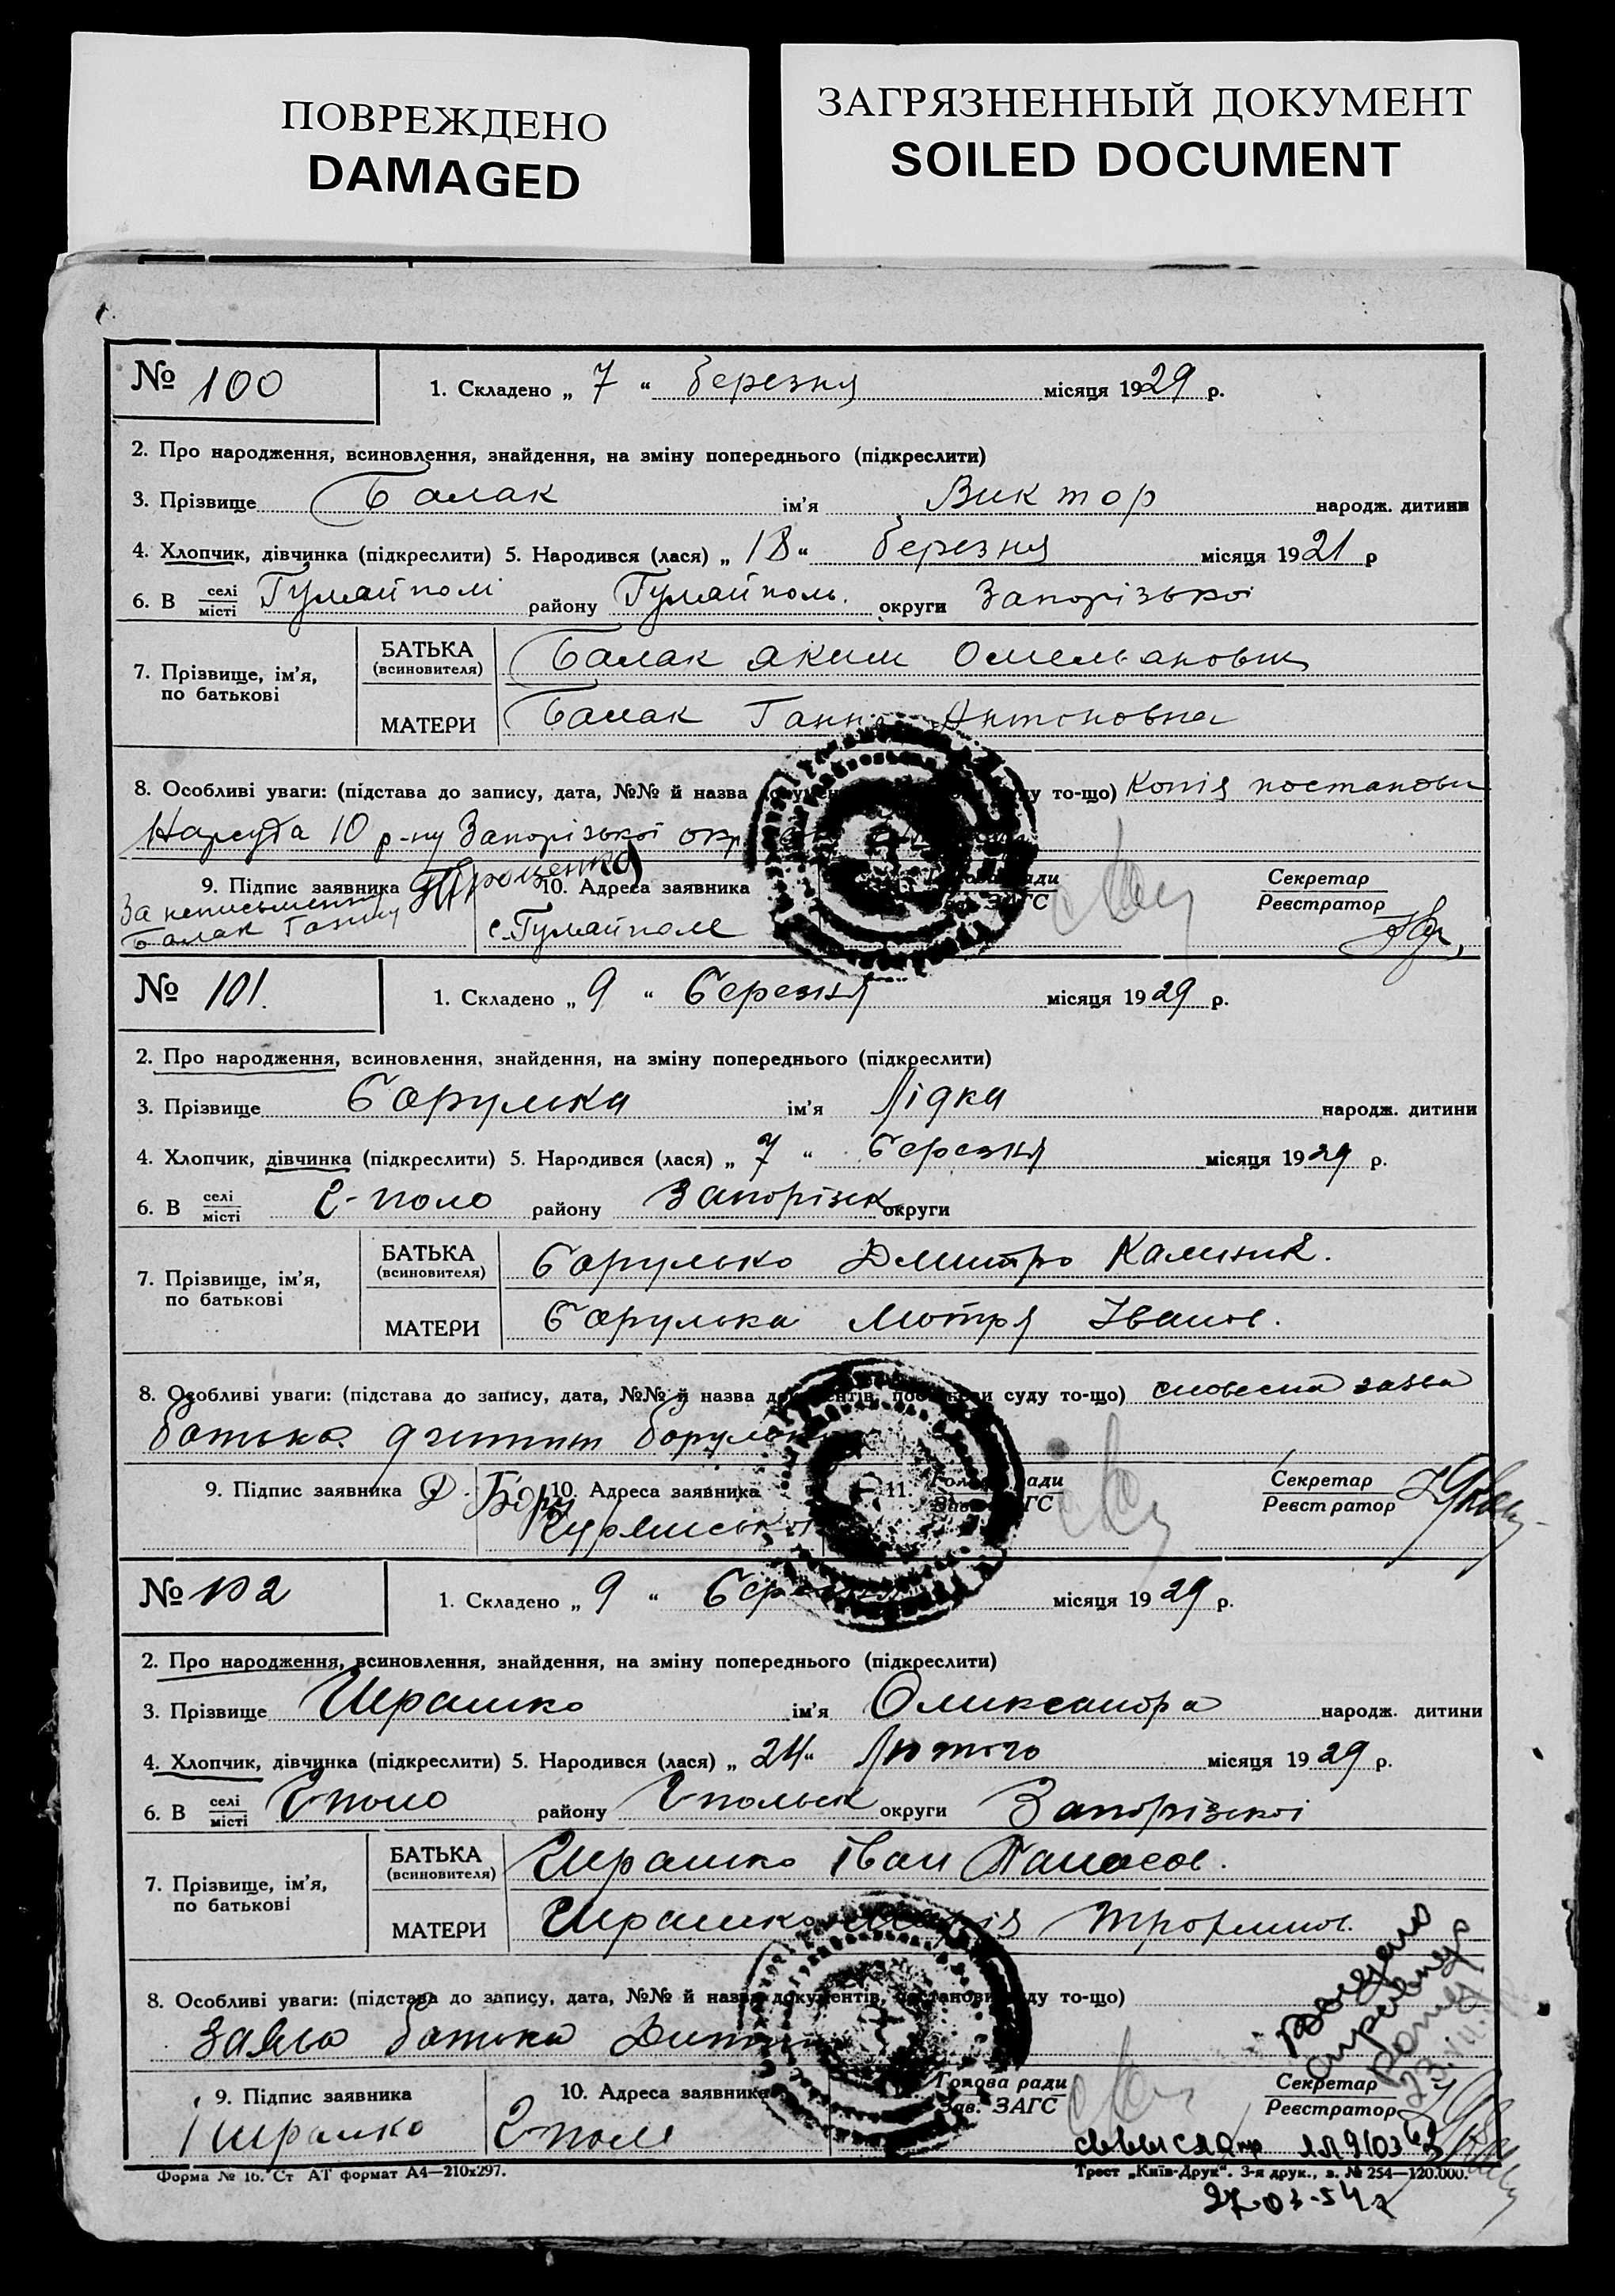 ПОВРЕЖДЕНО
DAMAGED
ЗАГРЯЗНЕННЫЙ ДОКУМЕНТ
SOILED DOCUMENT
№ 100
1. Складено „ 7 “ березня місяця 1929 р.
2. Про народження, всиновлення, знайдення, на зміну попереднього (підкреслити)
3. Прізвище Балак ім’я Виктор народж. дитини
4. Хлопчик, дівчинка (підкреслити) 5. Народився (лася) „ 18 “ березня місяця 1921 р
6. В селі місті Гуляйполі району Гуляйполь. округи Запорізької
7. Прізвище, ім’я, по батькові
БАТЬКА (всиновителя) Балак Яким Омельанович
МАТЕРИ Балак Ганна Антоновна
8. Особливі уваги: (підстава до запису, дата, №№ й назва то-що) Копія постанови
Нарсуда 10 р-ну Запорізької окр
9. Підпис заявника Проценко
За неписьменну
Балак Ганну
10. Адреса заявника
с. Гуляйполе
ЗАГС
Секретар
Реєстратор
№ 101.
1. Складено „ 9 “ Березня місяця 1929 р.
2. Про народження, всиновлення, знайдення, на зміну попереднього (підкреслити)
3. Прізвище Борулька ім’я Лідка народж. дитини
4. Хлопчик, дівчинка (підкреслити) 5. Народився (лася) „ 7 “ Березня місяця 1929 р.
6. В селі місті Г-поло району Запорізьк округи
7. Прізвище, ім’я, по батькові
БАТЬКА (всиновителя) Борулько Дмитро Калиник.
МАТЕРИ Борулька Мотря Іванов.
8. Особливі уваги: (підстава до запису, дата, №№ й назва документів, постанови суду то-що) словесна заява
батька
9. Підпис заявника Д. Бору
10. Адреса заявника
11. Голова ради
Зав. ЗАГС
Секретар
Реєстратор
№ 102
1. Складено „ 9 “ Березня місяця 1929 р.
2. Про народження, всиновлення, знайдення, на зміну попереднього (підкреслити)
3. Прізвище Ширашко ім’я Олександра народж. дитини
4. Хлопчик, дівчинка (підкреслити) 5. Народився (лася) „ 24 “ Лютого місяця 1929 р.
6. В селі місті Гполо району Гпольск округи Запорізскоі
7. Прізвище, ім’я, по батькові
БАТЬКА (всиновителя) Ширашко Іван Панасов.
МАТЕРИ Ширашко Марія Трофимов.
8. Особливі уваги: (підстава до запису, дата, №№ й назва документів, постанови суду то-що)
Заява батька Дитини
9. Підпис заявника
Ширашко
10. Адреса заявника
Гполе
Голова ради
Зав. ЗАГС
Секретар
Реєстратор
27.03.54 г
Форма № 16. Ст АТ формат А4—210x297.
Трест „Київ-Друк“. 3-я друк., з. № 254—120.000.